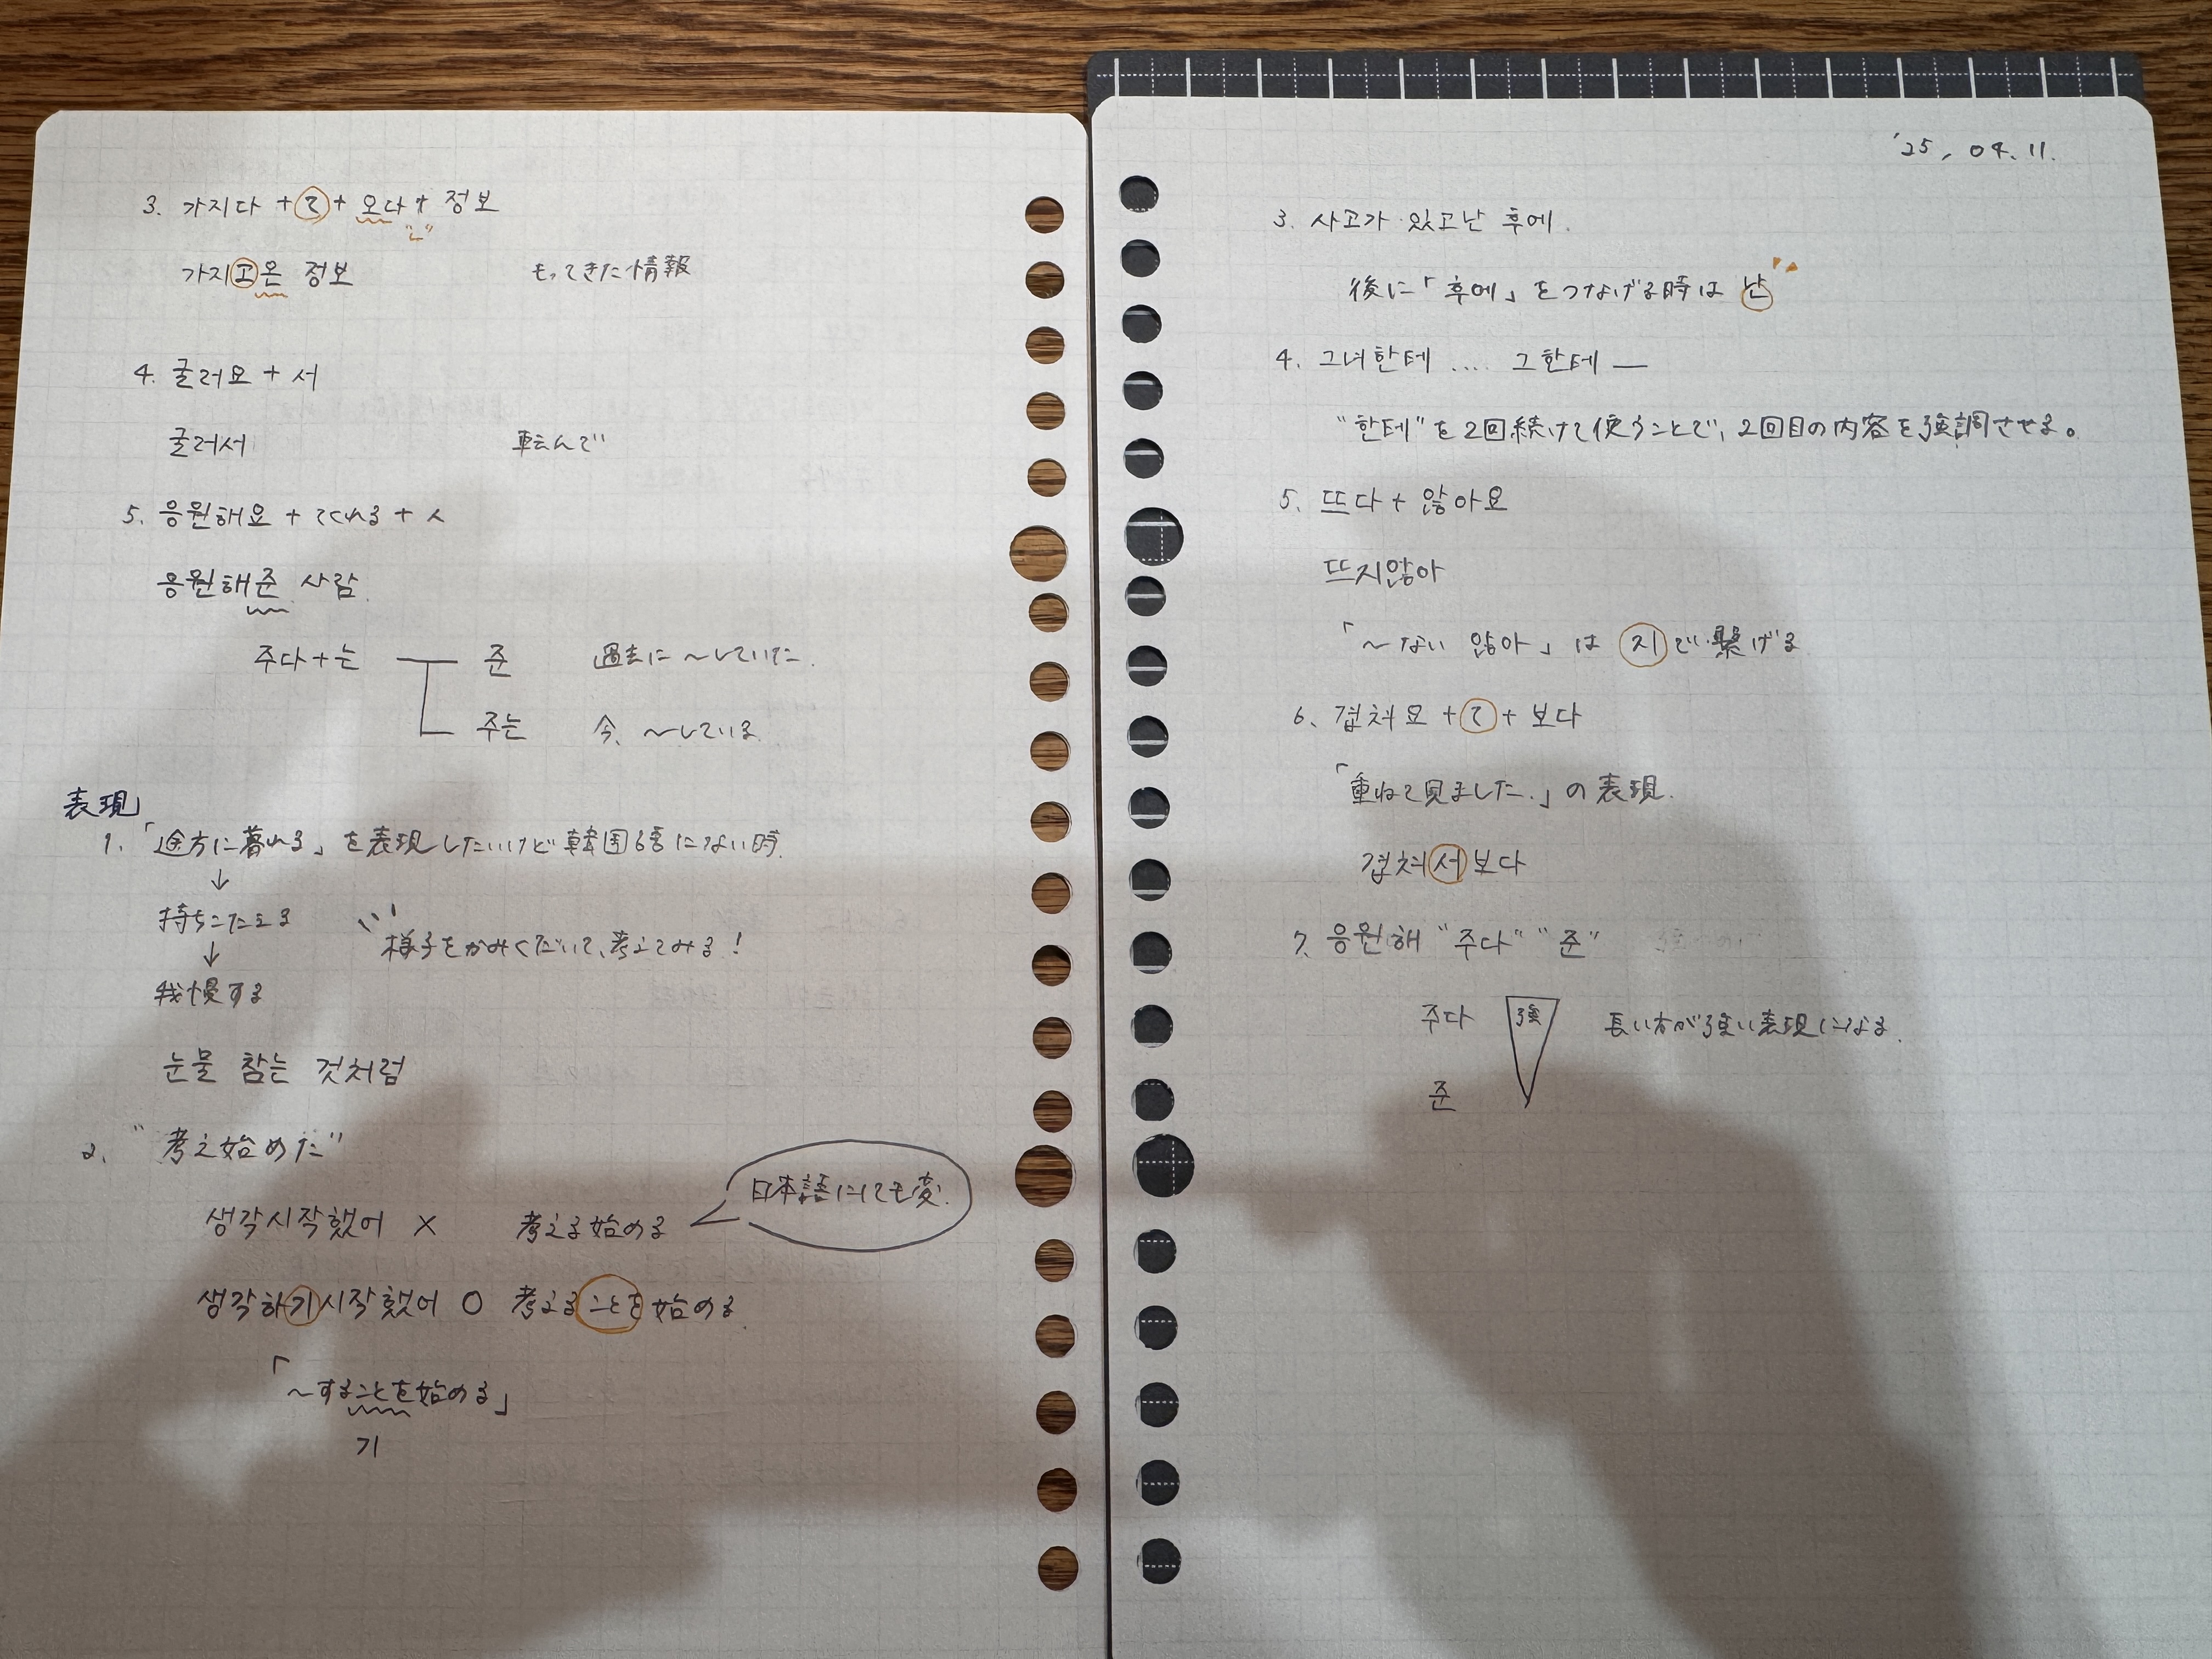 3. 가지다 + て + 오다 + 정보
"ㄴ"
가지고온 정보 もってきた情報
4. 굴러요 + 서
굴러서 転んで
5. 응원해요 + てくれる + 人
응원해준 사람.
주다+는 준 過去に 〜していた.
주는 今、〜している.
表現
1. 「途方に暮れる」を表現したいけど韓国語にない時.
↓
持ちこたえる
様子をかみくだいて、考えてみる!
↓
我慢する
눈물 참는 것처럼
2. "考え始めた"
日本語にしても変.
생각시작했어 × 考える始める
생각하기시작했어 ○ 考えることを始める.
「〜することを始める」
기
'25, 04. 11.
3. 사고가 있고난 후에.
後に「후에」をつなげる時は 난
4. 그녀한테 .... 그한테 —
"한테"を2回続けて使うことで、2回目の内容を強調させる。
5. 뜨다 + 않아요
뜨지않아
「〜ない 않아」は 지で繋げる
6. 겹쳐요 + て + 보다
「重ねて見ました.」の表現.
겹쳐서보다
7. 응원해 "주다" "준"
주다 強 長い方が強い表現になる.
준